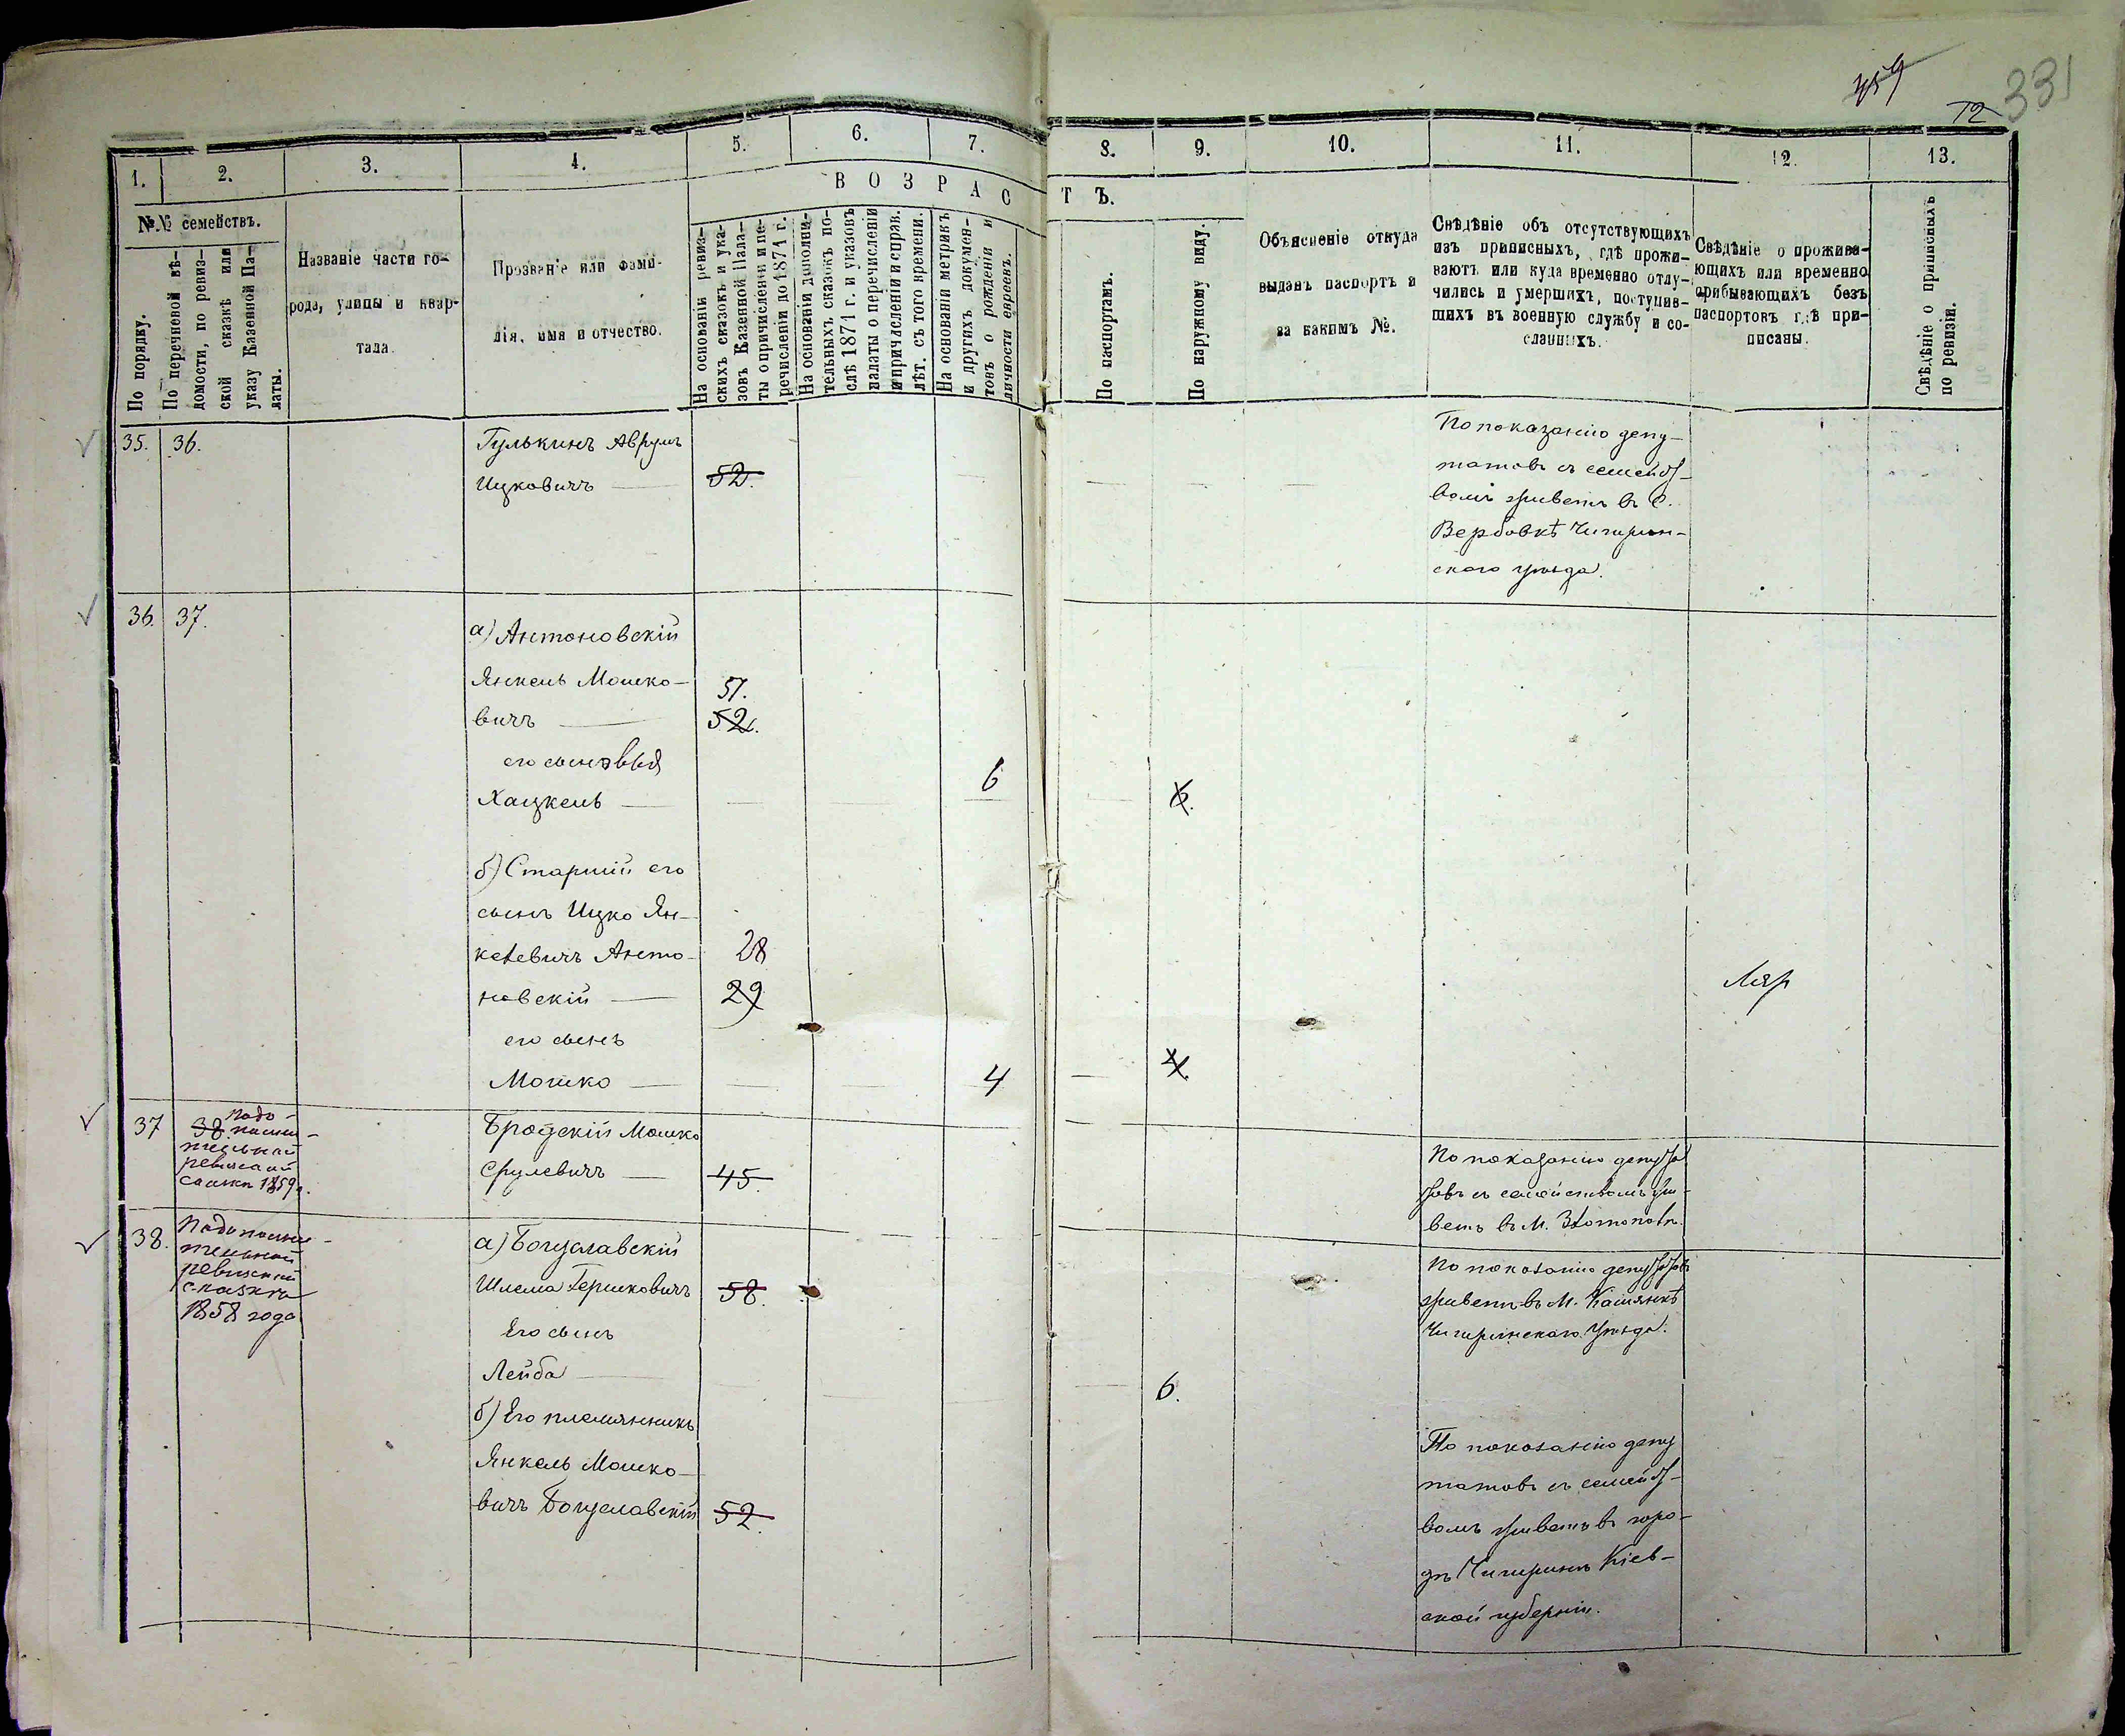 459
72
331
1.
2.
3.
4.
5.
6.
7.
8.
9.
10.
11.
12.
13.
№№ семействъ.
По порядку.
По перечневой вѣ-
домости, по ревиз-
ской сказкѣ или
указу Казенной Па-
латы.
Названіе части го-
рода, улицы и квар-
тала.
Прозваніе или фами-
лія, имя и отчество.
ВОЗРАСТЪ.
На основаніи ревиз-
скихъ сказокъ и ука-
зовъ Казенной Пала-
ты о причисленіи и пе-
речисленіи до 1871 г.
На основаніи дополни-
тельныхъ сказокъ по-
слѣ 1871 г. и указовъ
палаты о перечисленіи
и причисленіи и справ.
лѣт. съ того времени.
На основаніи метрикъ
и другихъ докумен-
товъ о рожденіи и
личности евреевъ.
По паспортамъ.
По наружному виду.
Объясненіе откуда
выданъ паспортъ и
за какимъ №.
Свѣдѣніе объ отсутствующихъ
изъ приписныхъ, гдѣ прожи-
ваютъ или куда временно отлу-
чились и умершихъ, поступив-
шихъ въ военную службу и со-
сланныхъ.
Свѣдѣніе о прожива-
ющихъ или временно
прибывающихъ безъ
паспортовъ гдѣ при-
писаны.
Свѣдѣніе о приписныхъ
по ревизіи.
35. 36.
Гулькинъ Аврумъ
Ицковичъ — 52.
По показанію депу-
татовъ съ семейст-
вомъ живетъ въ С.
Вербовкѣ Чигирин-
скаго уѣзда.
36. 37.
а) Антоновскій
Янкель Мошко- 51.
вичъ — 52.
его сыновья
Хацкель — 6 6.
б) Старшій его
сынъ Ицко Ян-
келевичъ Анто- 28
новскій — 29
его сынъ
Мошко — 4 4.
37 38. По до-
полни-
тельной
ревизской
сказки 1859 г.
Бродскій Мошко
Срулевичъ — 45.
По показанію депута
товъ съ семействомъ жи-
ветъ въ М. Златополѣ.
38. По дополни-
тельной
ревизской
сказки
1858 года
а) Богуславскій
Шлема Гершковичъ 58.
Его сынъ
Лейба — 6.
По показанію депутатовъ
живетъ въ М. Каменкѣ
Чигиринскаго уѣзда.
б) Его племянникъ
Янкель Мошко-
вичъ Богуславскій 52.
По показанію депу
татовъ съ семейст-
вомъ живетъ въ горо-
дѣ Чигиринѣ Кіев-
ской губерніи.